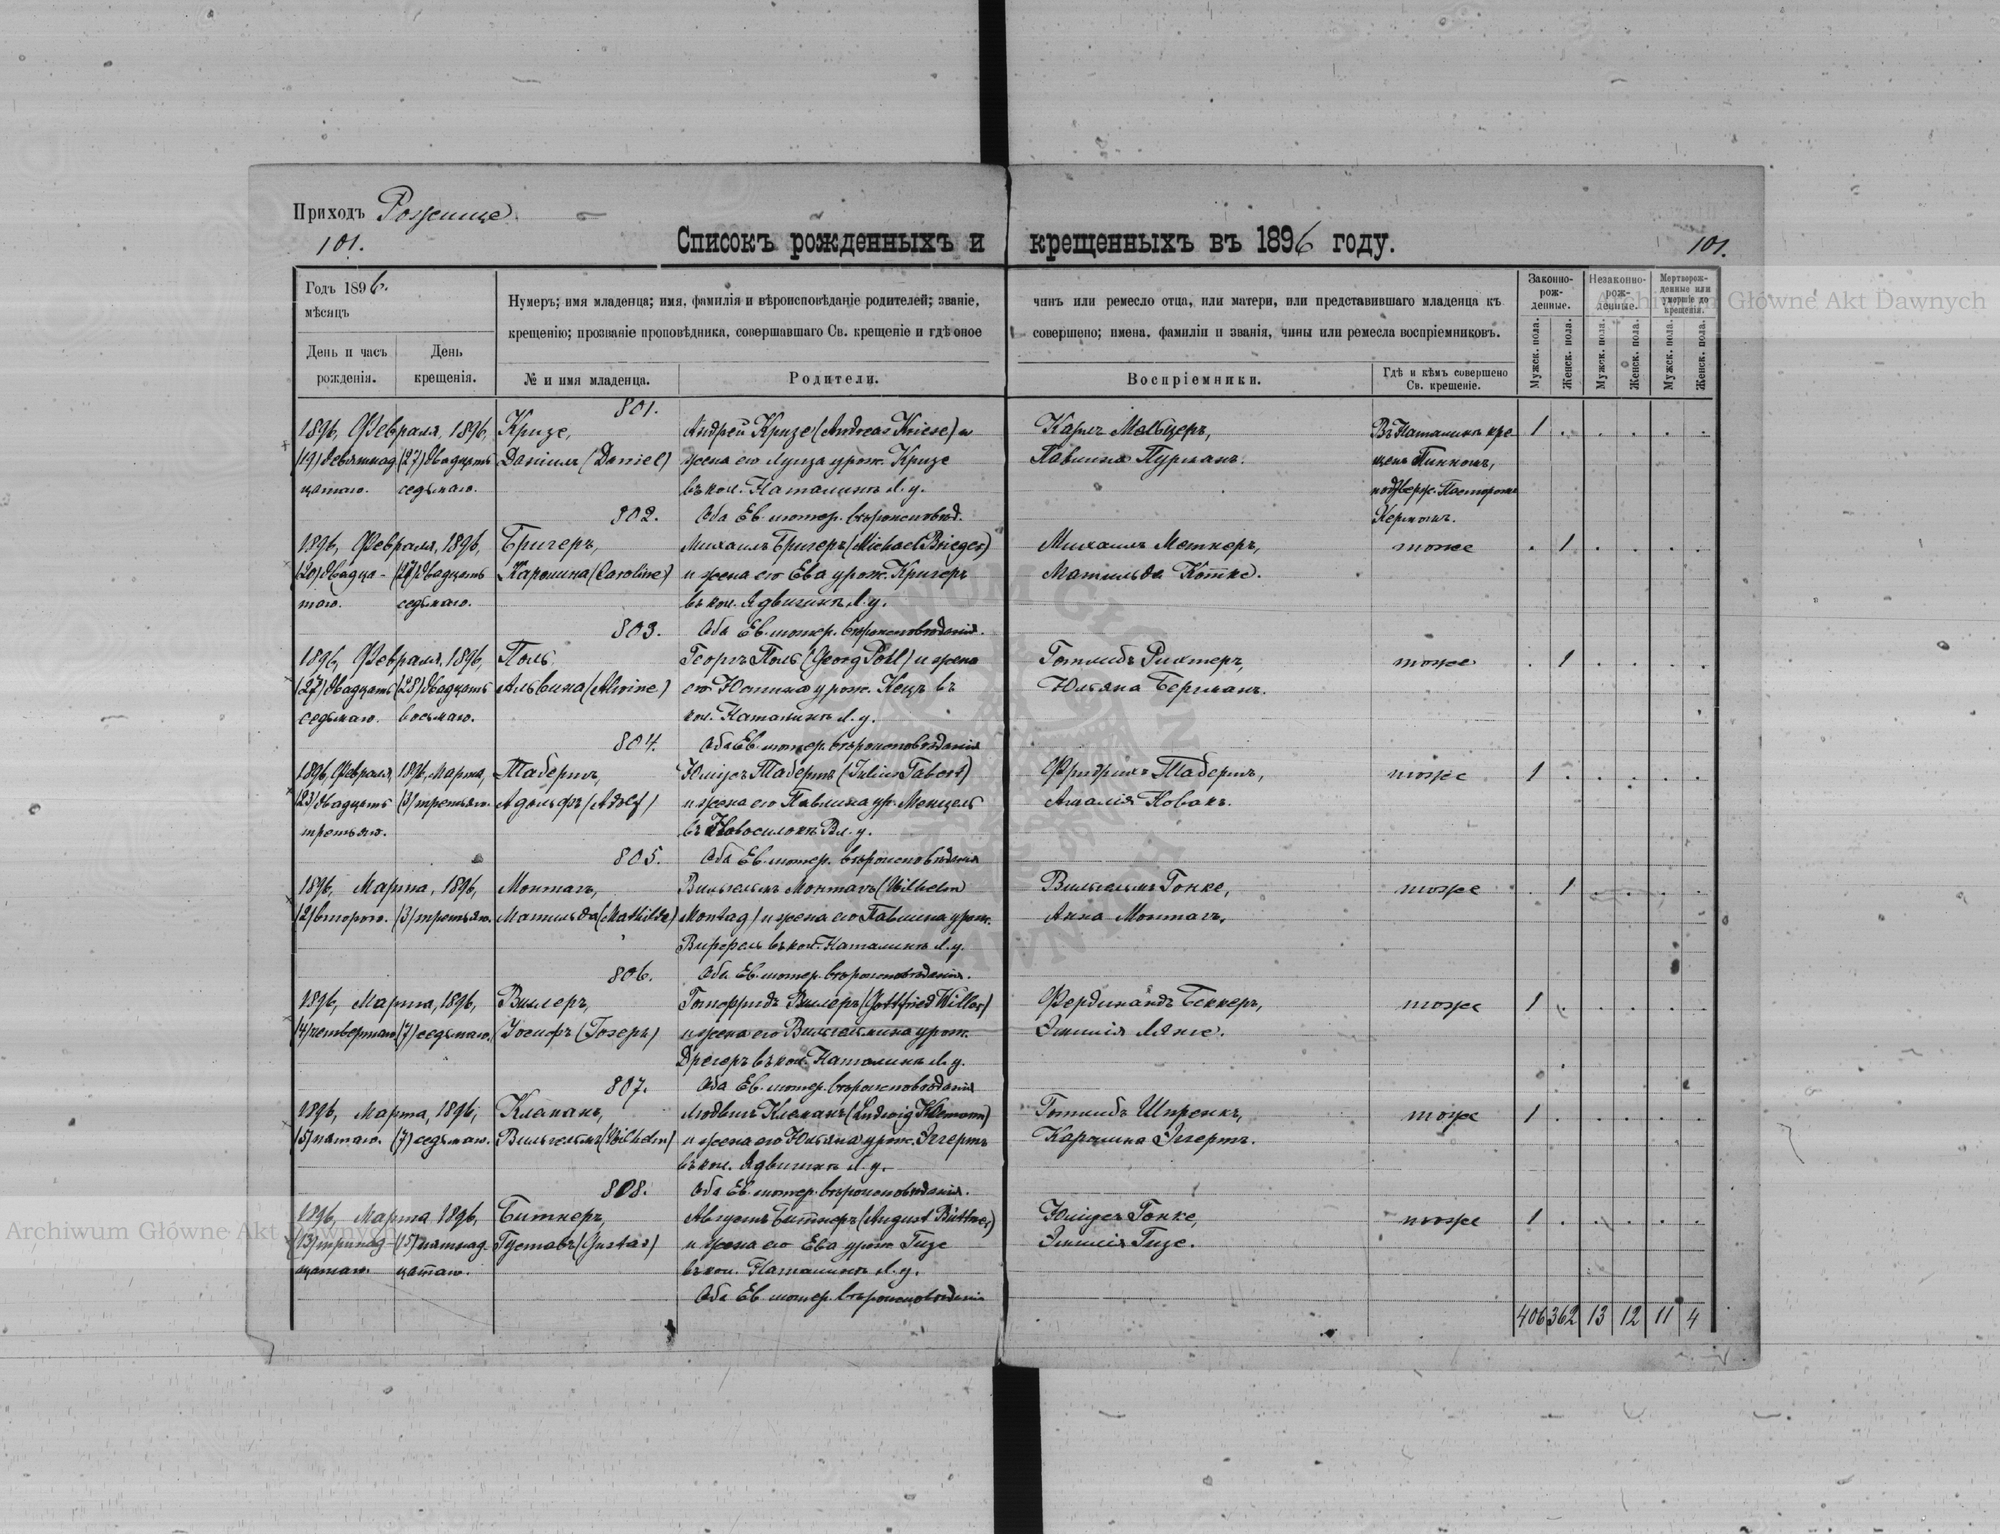 Приходъ Рожище.
101.
Списокъ рожденныхъ и крещенныхъ въ 1896 году.
101.
Годъ 1896.
мѣсяцъ
День и часъ рожденія.
День крещенія.
Нумеръ; имя младенца; имя, фамилія и вѣроисповѣданіе родителей; званіе, чинъ или ремесло отца, или матери, или представившаго младенца къ
крещенію; прозваніе проповѣдника, совершавшаго Св. крещеніе и гдѣ оное совершено; имена, фамиліи и званія, чины или ремесла воспріемниковъ.
№ и имя младенца.
Родители.
Воспріемники.
Гдѣ и кѣмъ совершено Св. крещеніе.
Законно-рож-денные.
Незаконно-рож-денные.
Мертворож-денные или умершіе до крещенія.
Мужск. пола.
Женск. пола.
Мужск. пола.
Женск. пола.
Мужск. пола.
Женск. пола.
801.
1896, Февраля, 1896, Кризе, Андрей Кризе (Andreas Kriese) и Карлъ Въ Наталинѣ кре 1 . . . . .
(19) девятнад (27) двадцать Даніилъ (Daniel) жена его Луиза урож. Кризе Павлина щенъ
цатаго. седьмаго. въ кол. Наталинъ Л. у. подтверж. Пасторомъ
802. Оба Ев. лютер. вѣроисповѣд. Керномъ.
1896, Февраля, 1896, Бригеръ, Михаилъ Бригеръ (Michael Brieger) Михаилъ тоже . 1 . . . .
(20) двадца- (27) двадцать Каролина (Caroline) и жена его Ева урож. Кригеръ Матильда
таго. седьмаго. въ кол. Ядвигинъ Л. у.
803. Оба Ев. лютер. вѣроисповѣданія.
1896, Февраля, 1896, Поль Георгъ Поль (Georg Pohl) и жена Готлибъ Рихтеръ, тоже . 1 . . . .
(27) двадцать (28) двадцать Альвина (Alvine) его Юстина урож. въ Юльяна Бергманъ.
седьмаго. восьмаго. кол. Наталинъ Л. у.
804. Оба Ев. лютер. вѣроисповѣданія
1896, Февраля, 1896, Марта, Табертъ, Юліусъ Табертъ (Julius Tabert) Фридрихъ Табертъ, тоже 1 . . . . .
(23) двадцать (3) третьяго. Адольфъ (Adolf) и жена его Павлина ур. Менцель Амалія Новакъ.
третьяго. въ Новосилокъ Вл. у.
805. Оба Ев. лютер. вѣроисповѣданія
1896, Марта, 1896, Монтагъ, Вильгельмъ Монтагъ (Wilhelm Вильгельмъ Гонке, тоже . 1 . . . .
(2) второго. (3) третьяго. Матильда (Mathilde) Montag) и жена его Павлина урож. Анна Монтагъ,
въ кол. Наталинъ Л. у.
806. Оба Ев. лютер. вѣроисповѣданія.
1896, Марта, 1896, Виллеръ, Готфридъ Виллеръ (Gottfried Willer) Фердинандъ Беккеръ, тоже 1 . . . . .
(4) четвертаго (7) седьмаго. Іосифъ (Joseph) и жена его Вильгельмина урож. Эмилія Лянге.
Дрегеръ въ кол. Наталинъ Л. у.
807. Оба Ев. лютер. вѣроисповѣданія
1896, Марта, 1896, Клеманъ, Людвигъ Клеманъ (Ludwig Klemann) Готлибъ Шпренкъ, тоже 1 . . . . .
(5) пятаго. (7) седьмаго. Вильгельмъ (Wilhelm) и жена его Юльяна урож. Эггертъ Каролина Эггертъ.
въ кол. Ядвигинъ Л. у.
808. Оба Ев. лютер. вѣроисповѣданія.
1896, Марта, 1896, Битнеръ, Августъ Битнеръ (August Büttner) Юліусъ Гонке, тоже 1 . . . . .
(13) тринад- (15) пятнад. Густавъ (Gustav) и жена его Ева урож. Гизе Эмилія Гизе.
цатаго. цатаго. въ кол. Наталинъ Л. у.
Оба Ев. лютер. вѣроисповѣданія
406 362 13 12 11 4
Archiwum Główne Akt Dawnych
Archiwum Główne Akt Dawnych